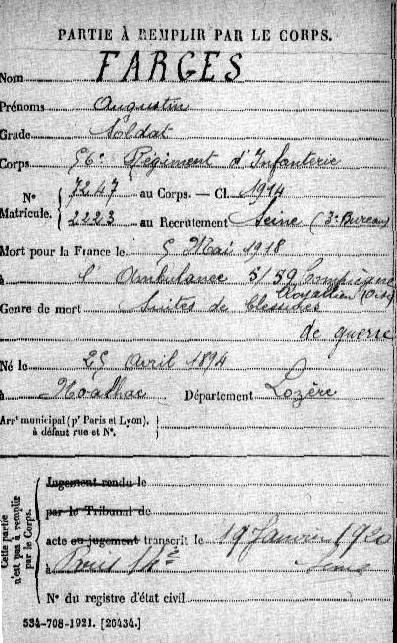 PARTIE À REMPLIR PAR LE CORPS.
Nom FARGES
Prénoms Augustin
Grade Soldat
Corps 56e Régiment d'Infanterie
N° Matricule. { 7247 au Corps. — Cl. 1914
2223 au Recrutement Seine (3e Bureau)
Mort pour la France le 5 Mai 1918
à l'Ambulance 5/59 Compiègne
Royallieu (Oise)
Genre de mort Suites de blessures
de guerre
Né le 25 Avril 1894
à Noalhac Département Lozère
Arrt municipal (pr Paris et Lyon),
à défaut rue et N°.
Cette partie n'est pas à remplir par le Corps.
Jugement rendu le
par le Tribunal de
acte ou jugement transcrit le 19 Janvier 1920
à Paris 14e Seine
N° du registre d'état civil
534-708-1921. [26434.]